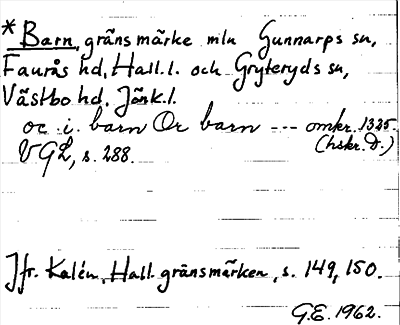 *Barn, gränsmärke mln Gunnarps sn,
Faurås hd, Hall.l. och Gryteryds sn,
Västbo hd, Jönk.l.
oc .i. barn Or barn --- omkr. 1325.
VGL, s. 288. (hskr. D.)
Jfr. Kalén, Hall. gränsmärken, s. 149, 150.
G.E. 1962.